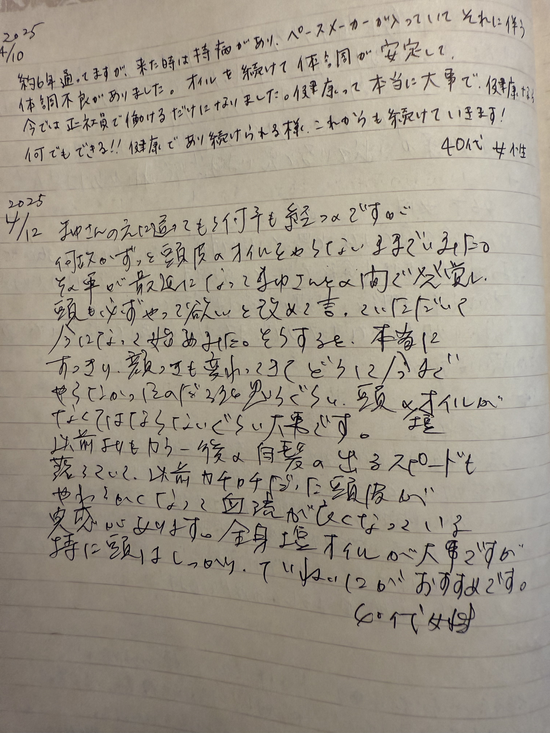 2025
4/10
約6年通ってますが、来た時は持病があり、ペースメーカーが入っていて それに伴う
体調不良がありました。オイルを続けて 体調が 安定して、
今では正社員で働けるだけになりました。健康って 本当に大事で、健康なら
何でもできる!! 健康であり続けられる様、これからも続けていきます!
40代 女性
2025
4/12
まゆさんの元に通ってもう何年も経つのですが
何故かずっと頭皮のオイルをやらないままでいました。
その事が最近になってまゆさんとの間で発覚し、
頭も必ずやって欲しいと改めて言っていただいて
今になって始めました。そうすると、本当に
すっきり、顔つきも変わってきて どうして今まで
やらなかったのだろうと思うぐらい、頭のオイルが
なくてはならないぐらい大事です。 塩
以前よりもカラー後の白髪の出るスピードも
落ちていて、以前カチカチだった頭皮が
やわらかくなって血流が良くなっている
実感があります。全身塩オイルが大事ですが
特に頭はしっかり、ていねいにが おすすめです。
40代女性